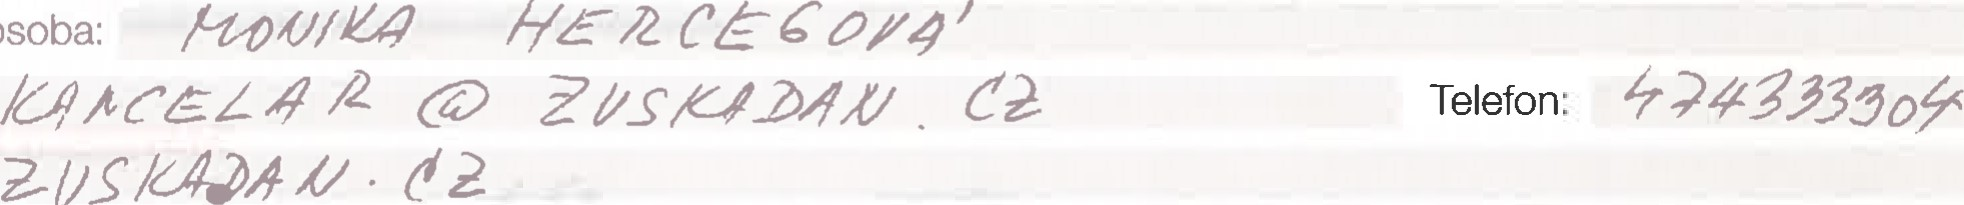 osoba: MONIKA HERCEGOVÁ
KANCELAR @ ZUSKADAN. CZ Telefon: 474333304
ZUSKADAN. CZ